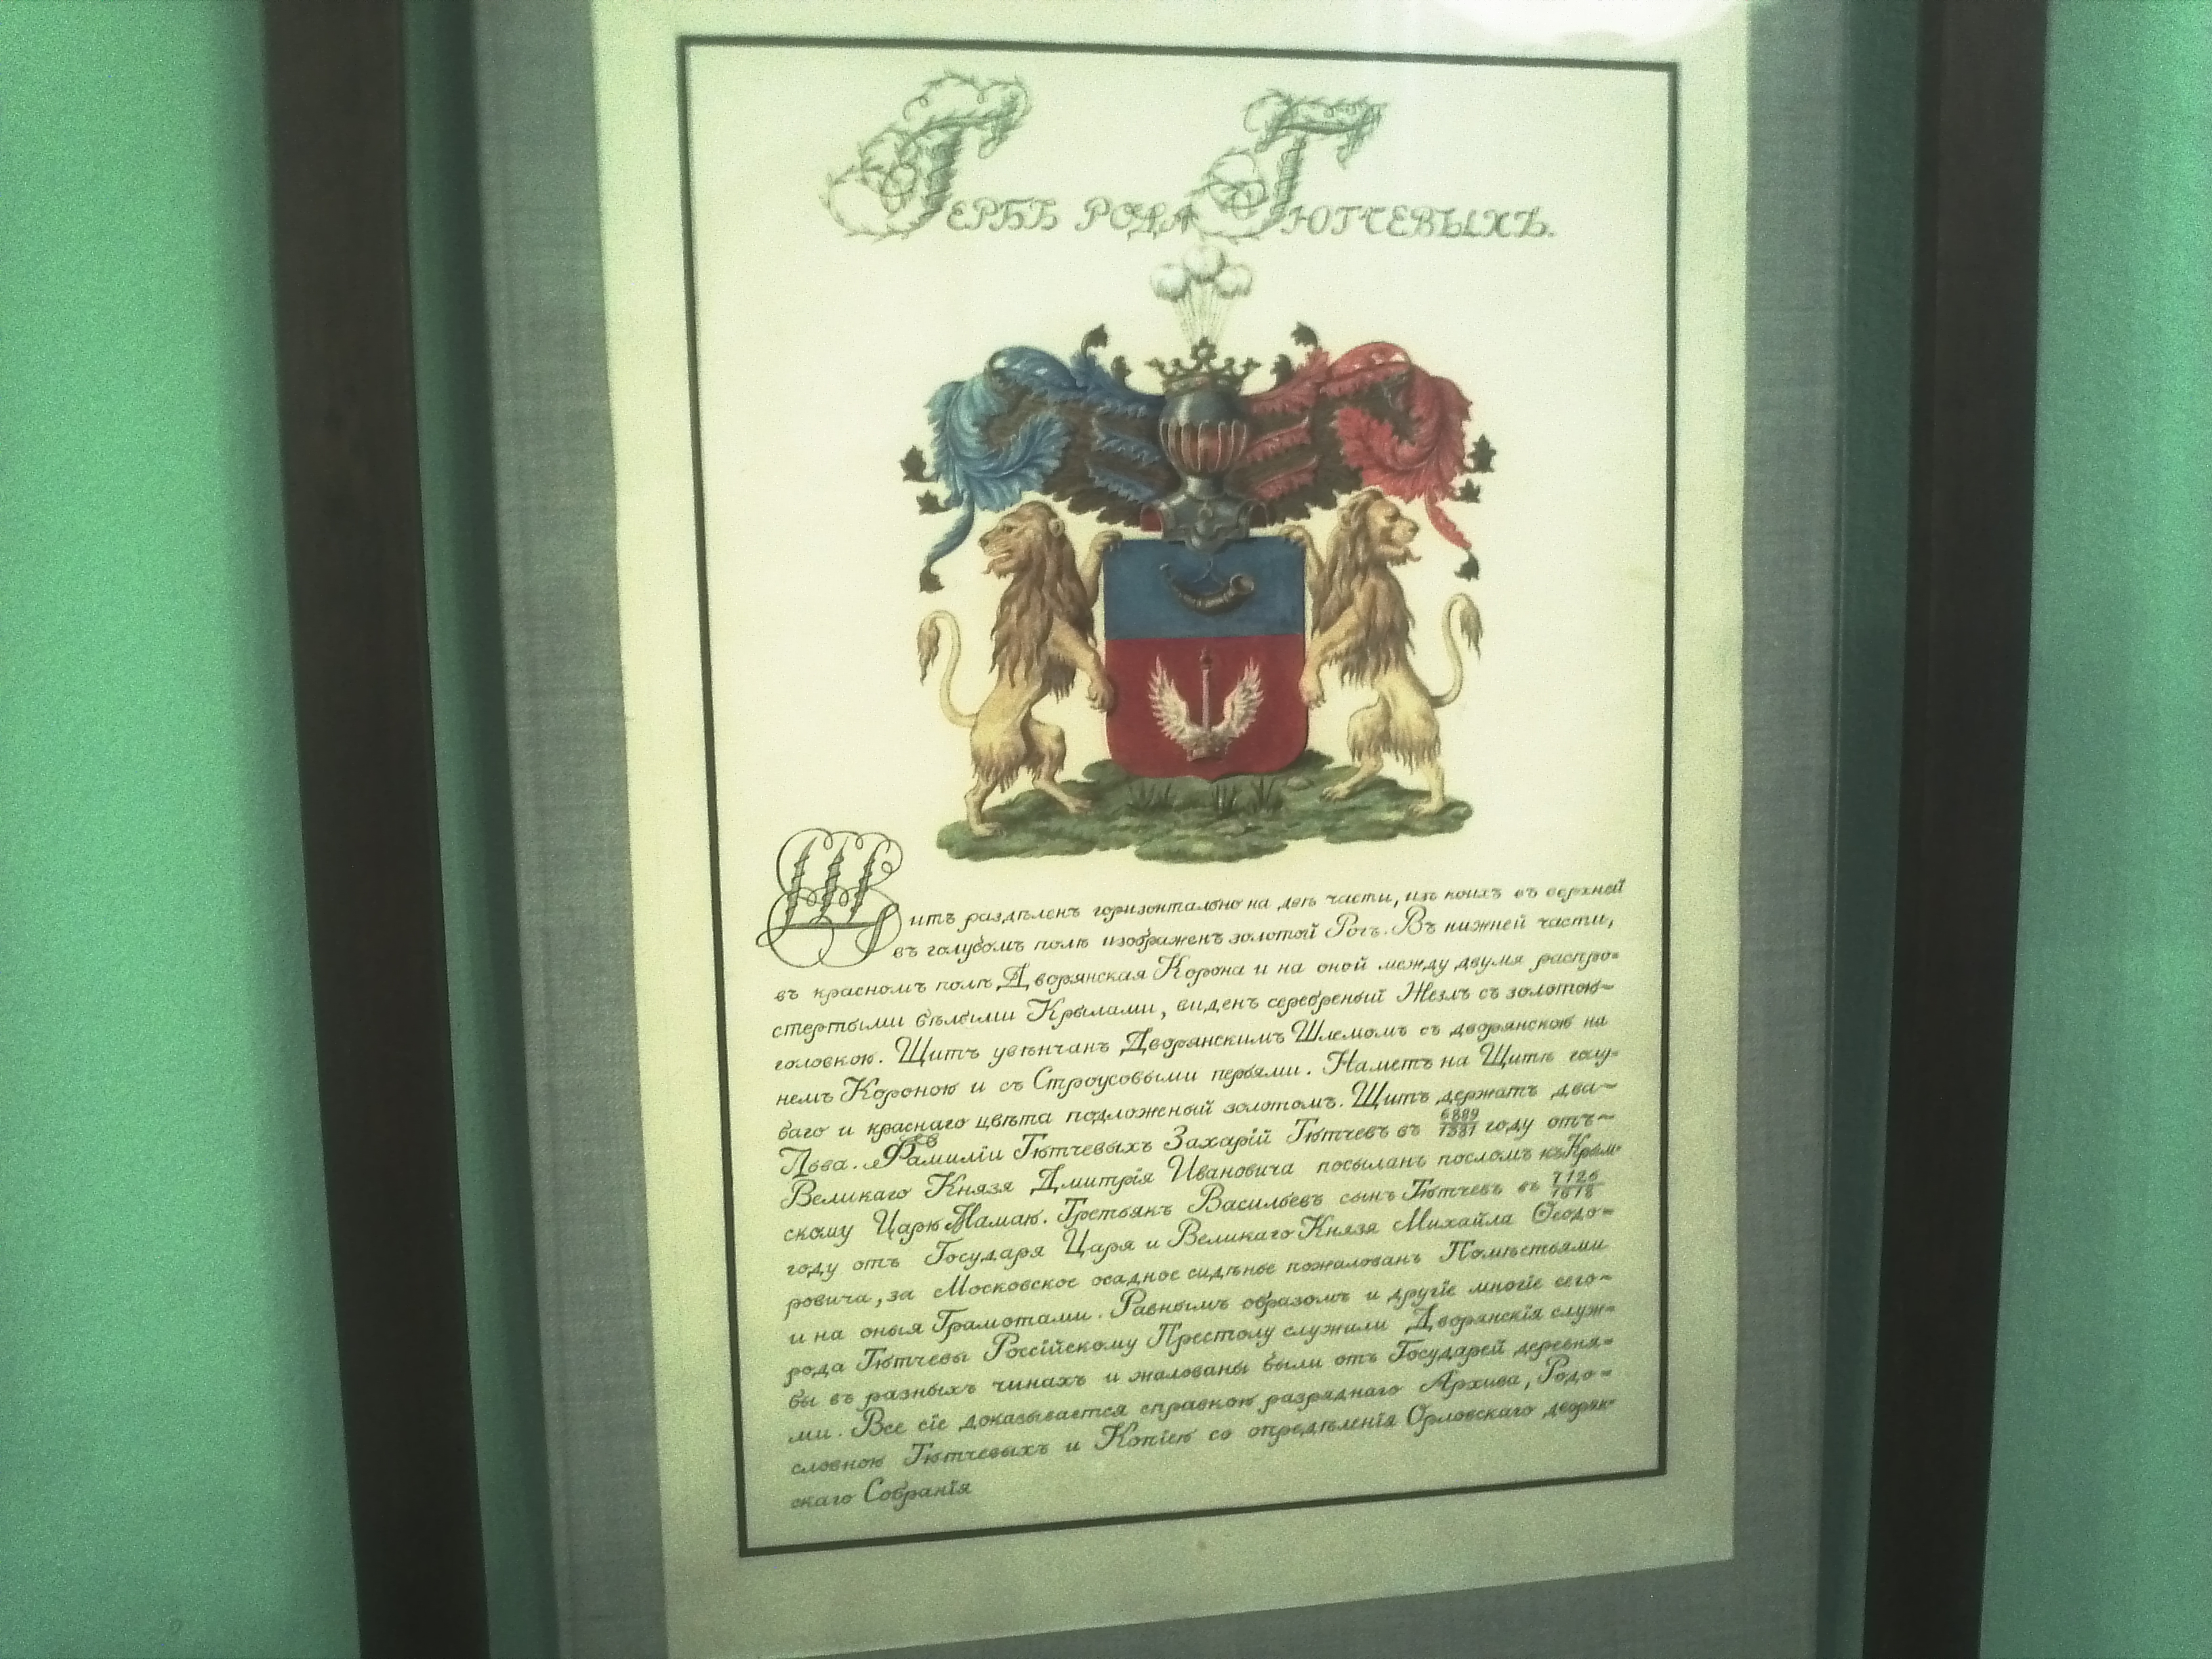 Гербъ рода Тютчевыхъ.
Щитъ раздѣленъ горизонтально на двѣ части, изъ коихъ въ верхней
въ голубомъ полѣ изображенъ золотой Рогъ. Въ нижней части,
въ красномъ полѣ Дворянская Корона и на оной между двумя распро=
стертыми бѣлыми Крылами, виденъ серебреный Жезлъ съ золотою
головкою. Щитъ увѣнчанъ Дворянскимъ Шлемомъ съ дворянскою на
немъ Короною и съ Строусовыми перьями. Наметъ на Щитѣ голу=
баго и краснаго цвѣта подложеный золотомъ. Щитъ держатъ два
Льва. Фамиліи Тютчевыхъ Захарій Тютчевъ въ 6889/1381 году отъ
Великаго Князя Дмитрія Ивановича посыланъ посломъ къ Крым=
скому Царю Мамаю. Третьякъ Васильевъ сынъ Тютчевъ въ 7126/1618
году отъ Государя Царя и Великаго Князя Михайла Ѳеодо=
ровича, за Московское осадное сидѣнье пожалованъ Помѣстьями
и на оныя Грамотами. Равнымъ образомъ и другіе многіе сего
рода Тютчевы Россійскому Престолу служили Дворянскія служ=
бы въ разныхъ чинахъ и жалованы были отъ Государей деревня=
ми. Все сіе доказывается справкою разряднаго Архива, Родо=
словною Тютчевыхъ и Копіею со опредѣленія Орловскаго дворян=
скаго Собранія